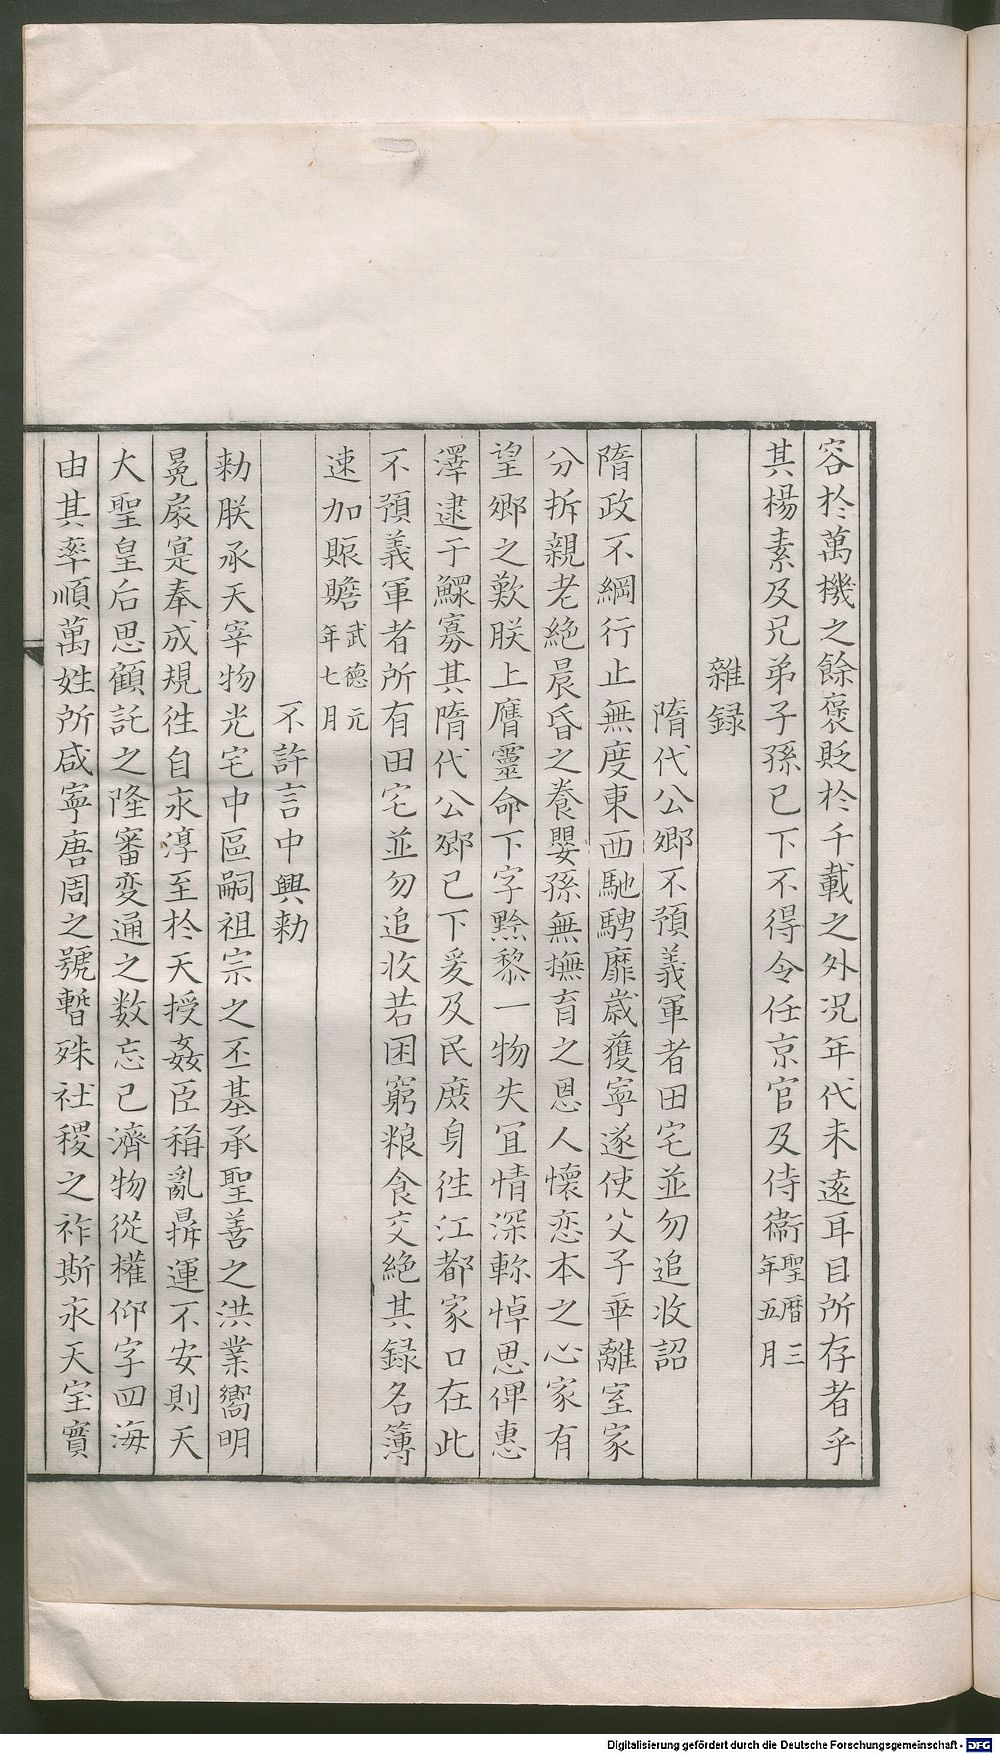 容於萬機之餘褒貶於千載之外况年代未遠耳目所存者乎
其楊素及兄弟子孫已下不得令任京官及侍衞聖曆三年五月
雜録
隋代公卿不預義軍者田宅並勿追收詔
隋政不綱行止無度東西馳騁靡歲獲寧遂使父子乖離室家
分拆親老絶晨昏之養嬰孫無撫育之恩人懷恋本之心家有
望鄉之歎朕上膺靈命下字黔黎一物失冝情深軫悼思俾惠
澤逮于鰥寡其隋代公卿已下爰及民庶身徃江都家口在此
不預義軍者所有田宅並勿追收若困窮粮食交絶其録名簿
速加賑贍武德元年七月
不許言中興勑
勑朕承天宰物光宅中區嗣祖宗之丕基承聖善之洪業嚮明
冕扆寔奉成規徃自永淳至於天授姦臣稱亂鼎運不安則天
大聖皇后思顧託之隆審変通之数忘已濟物從權仰字四海
由其率順萬姓所咸寧唐周之號暫殊社稷之祚斯永天室實
Digitalisierung gefördert durch die Deutsche Forschungsgemeinschaft - DFG